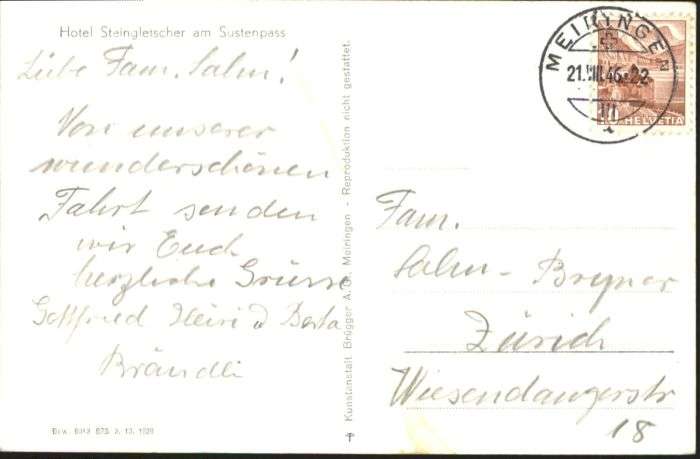 Hotel Steingletscher am Sustenpass
Liebe Fam. Salm!
Von unserer
wunderschönen
Fahrt senden
wir Euch
herzliche Grüsse
Gottfried Heiri u Berta
Brändli
Bew. 6013 BRB. 3. 10. 1939
Kunstanstalt Brügger A.G. Meiringen - Reproduktion nicht gestattet.
MEIRINGEN
21.VIII.46-22
HELVETIA
Fam.
Salm-Bryner
Zürich
Wiesendangerstr
18